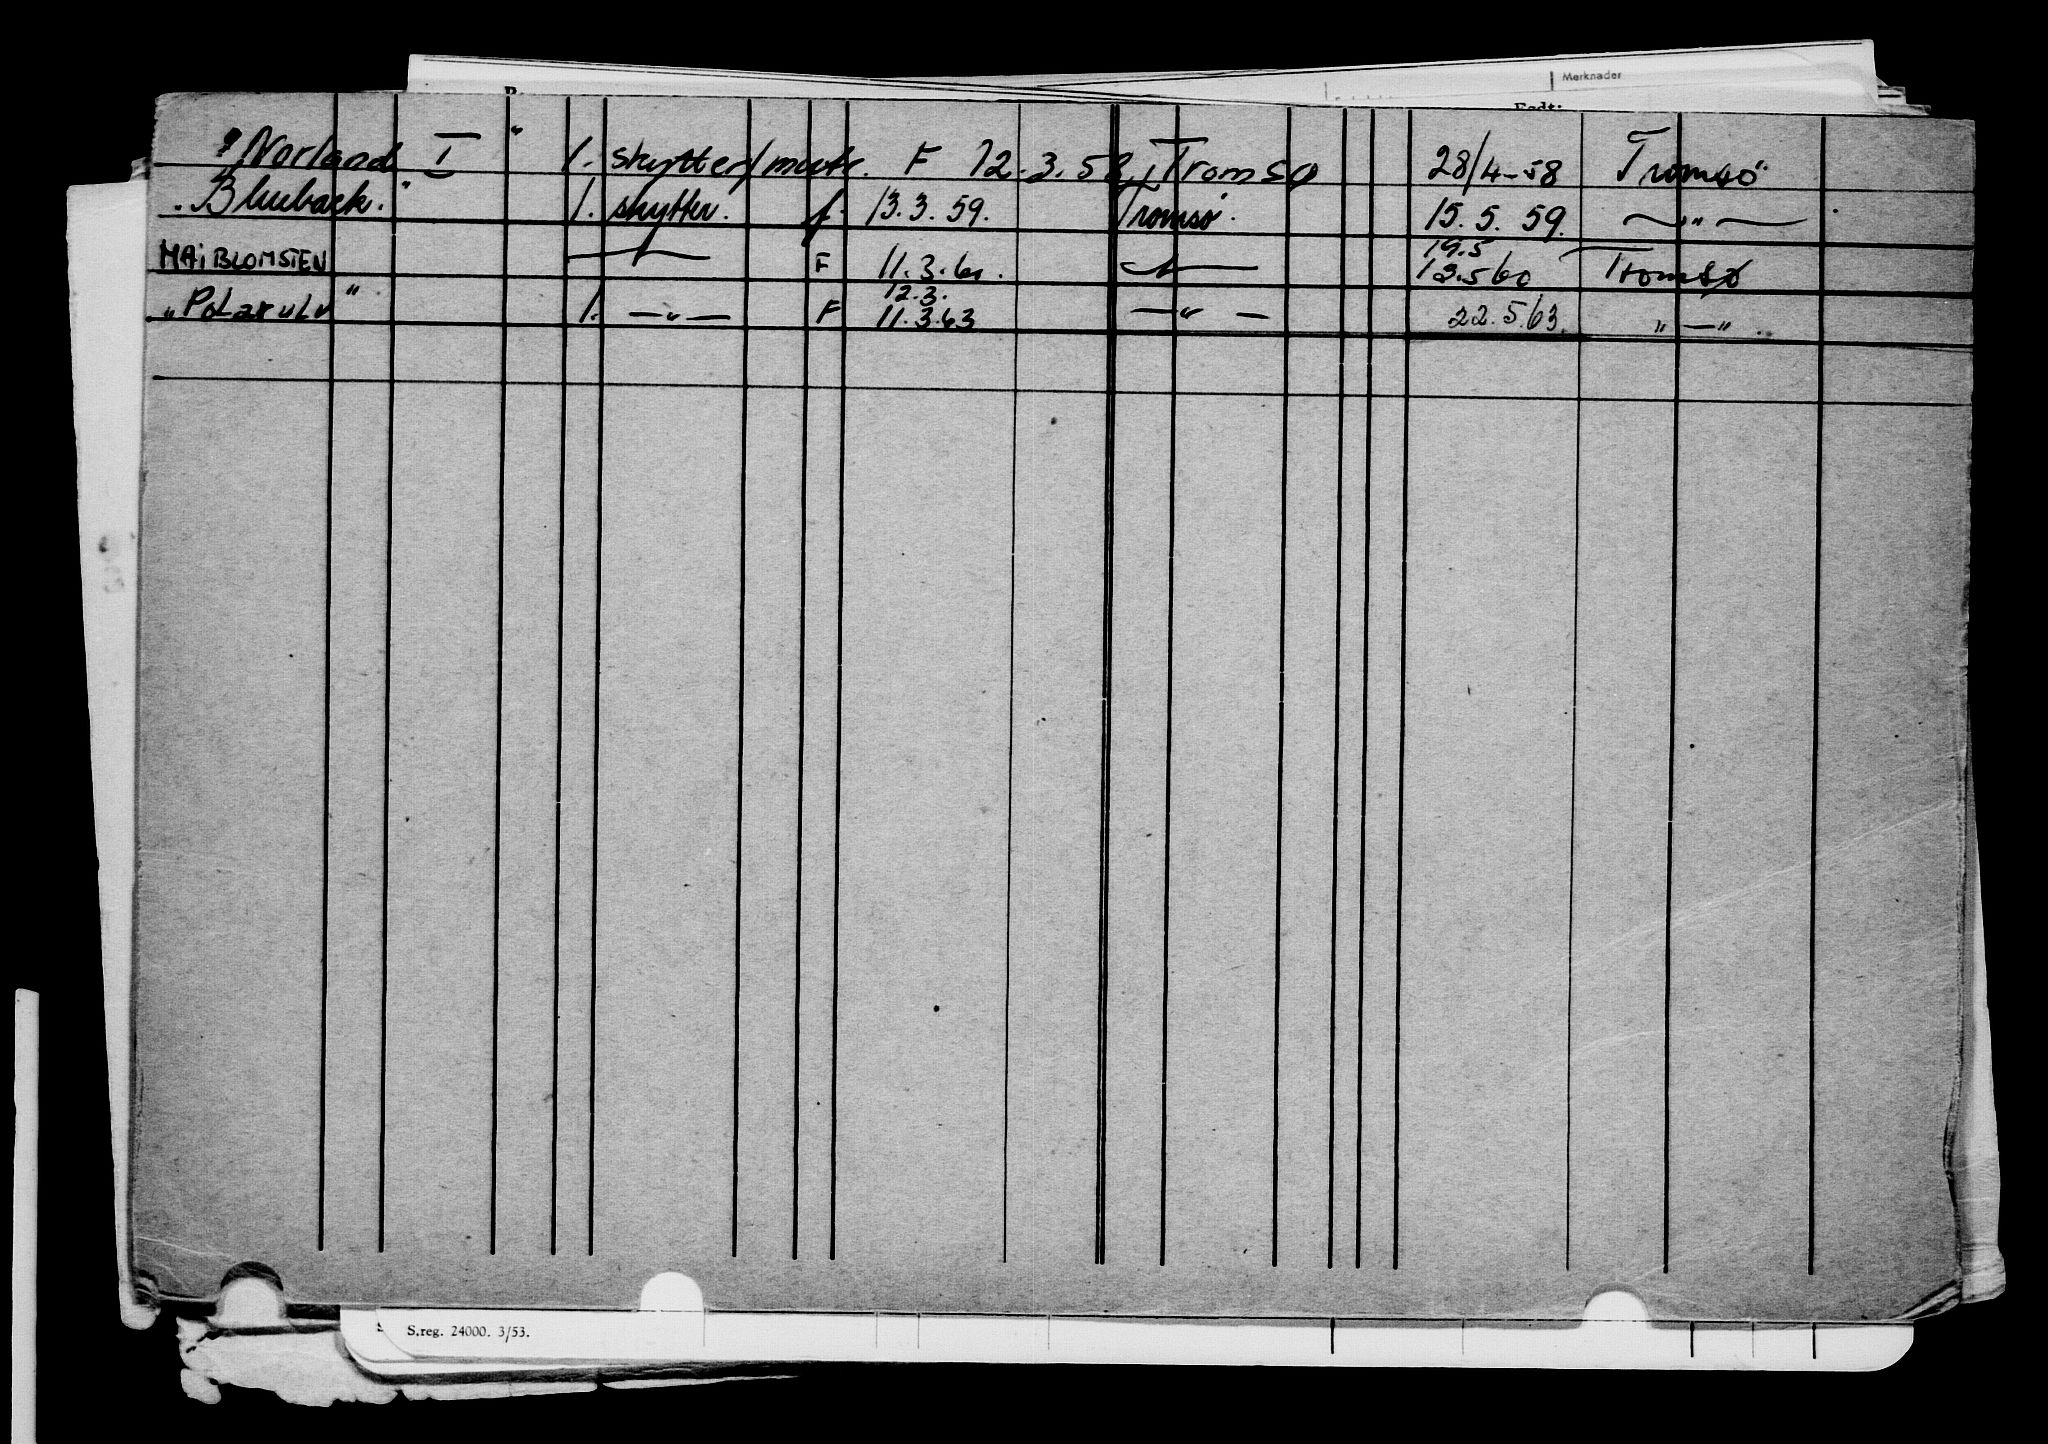 Merknader
Født:
"Norland I" 1. skytter/matr. F 12.3.58 Tromsø 28/4-58 Tromsø
"Blueback." 1. skytter. f. 13.3.59. Tromsø. 15.5.59. —"—
19.5
MAIBLOMSTEN —"— F 11.3.60. —"— 13.5 60 Tromsø
12.3.
"Polarulv" 1. —"— F 11.3.63 —"— 22.5.63. "—"
S.reg. 24000. 3/53.